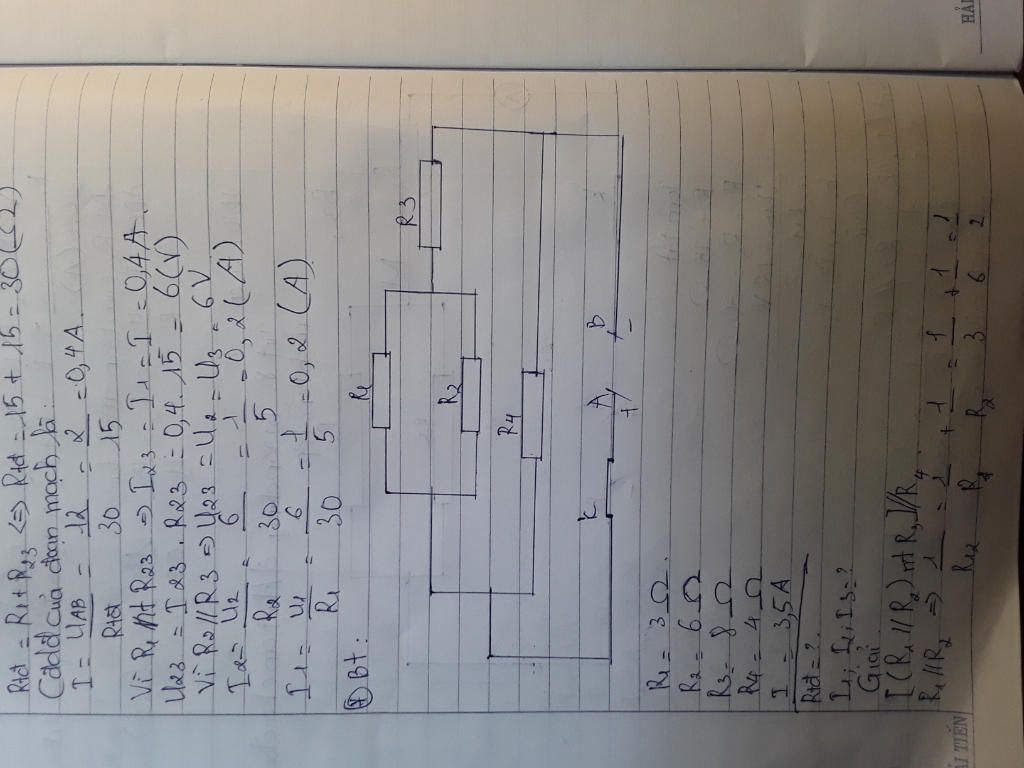 Rtđ = R1 + R23 <=> Rtđ = 15 + 15 = 30 (Ω)
Cđdđ của đoạn mạch là
I = UAB / Rtđ = 12 / 30 = 2 / 15 = 0,4A
Vì R1 nt R23 => I23 = I1 = I = 0,4A.
U23 = I23 . R23 = 0,4 . 15 = 6(V)
Vì R2 // R3 => U23 = U2 = U3 = 6V
I2 = U2 / R2 = 6 / 30 = 1 / 5 = 0,2 (A)
I1 = U1 / R1 = 6 / 30 = 1 / 5 = 0,2 (A)
Bt:
R1
R3
R2
R4
K
A
B
+
-
R1 = 3 Ω.
R2 = 6 Ω
R3 = 8 Ω
R4 = 4 Ω
I = 3,5A
Rtđ = ?
I1, I2, I3 = ?
Giải
[(R1 // R2) nt R3] // R4.
R1 // R2 => 1 / R12 = 1 / R1 + 1 / R2 = 1 / 3 + 1 / 6 = 1 / 2
HẢI TIẾN
HẢI